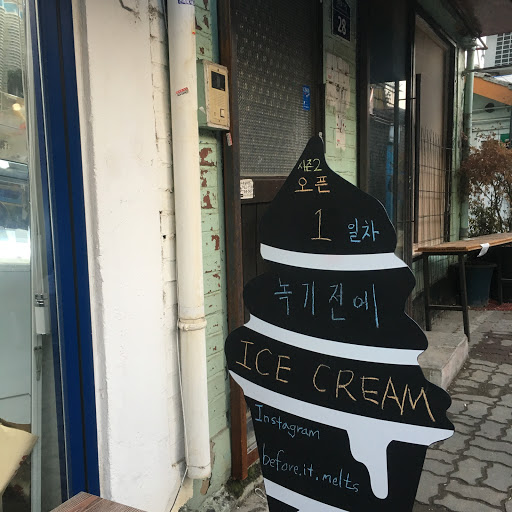 28
시즌2
오픈
1 일차
녹기전에
ICE CREAM
Instagram
before.it.melts